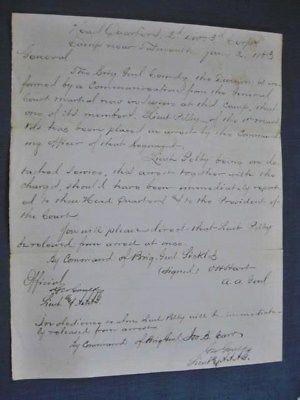 Head Quarters 2d Div 3d Corps
Camp near Falmouth Jany 2, 1863
General
The Brig. Genl Comdg the Division is in-
formed by a Communication from the General
Court martial now in session at this Camp, that
one of its members, Lieut Pelby, of the 1st Mass
Vols has been placed in arrest by the Command-
ing officer of that Regiment.
Lieut Pelby being on de-
tached service, this arrest together with the
charges, should have been immediately report-
ed to these Head Quarters & to the President of
the Court.
You will please direct that Lieut Pelby
be released from arrest at once.
By Command of Brig. Genl Sickles
(Signed) O H Hart
A. A. Genl
Official
Lieut & A.A.A.G.
In obedience to above Lieut Pelby will be immediate-
ly released from arrest
By Command of Brig Genl Jos. B. Carr
Lieut & A.A.A.G.